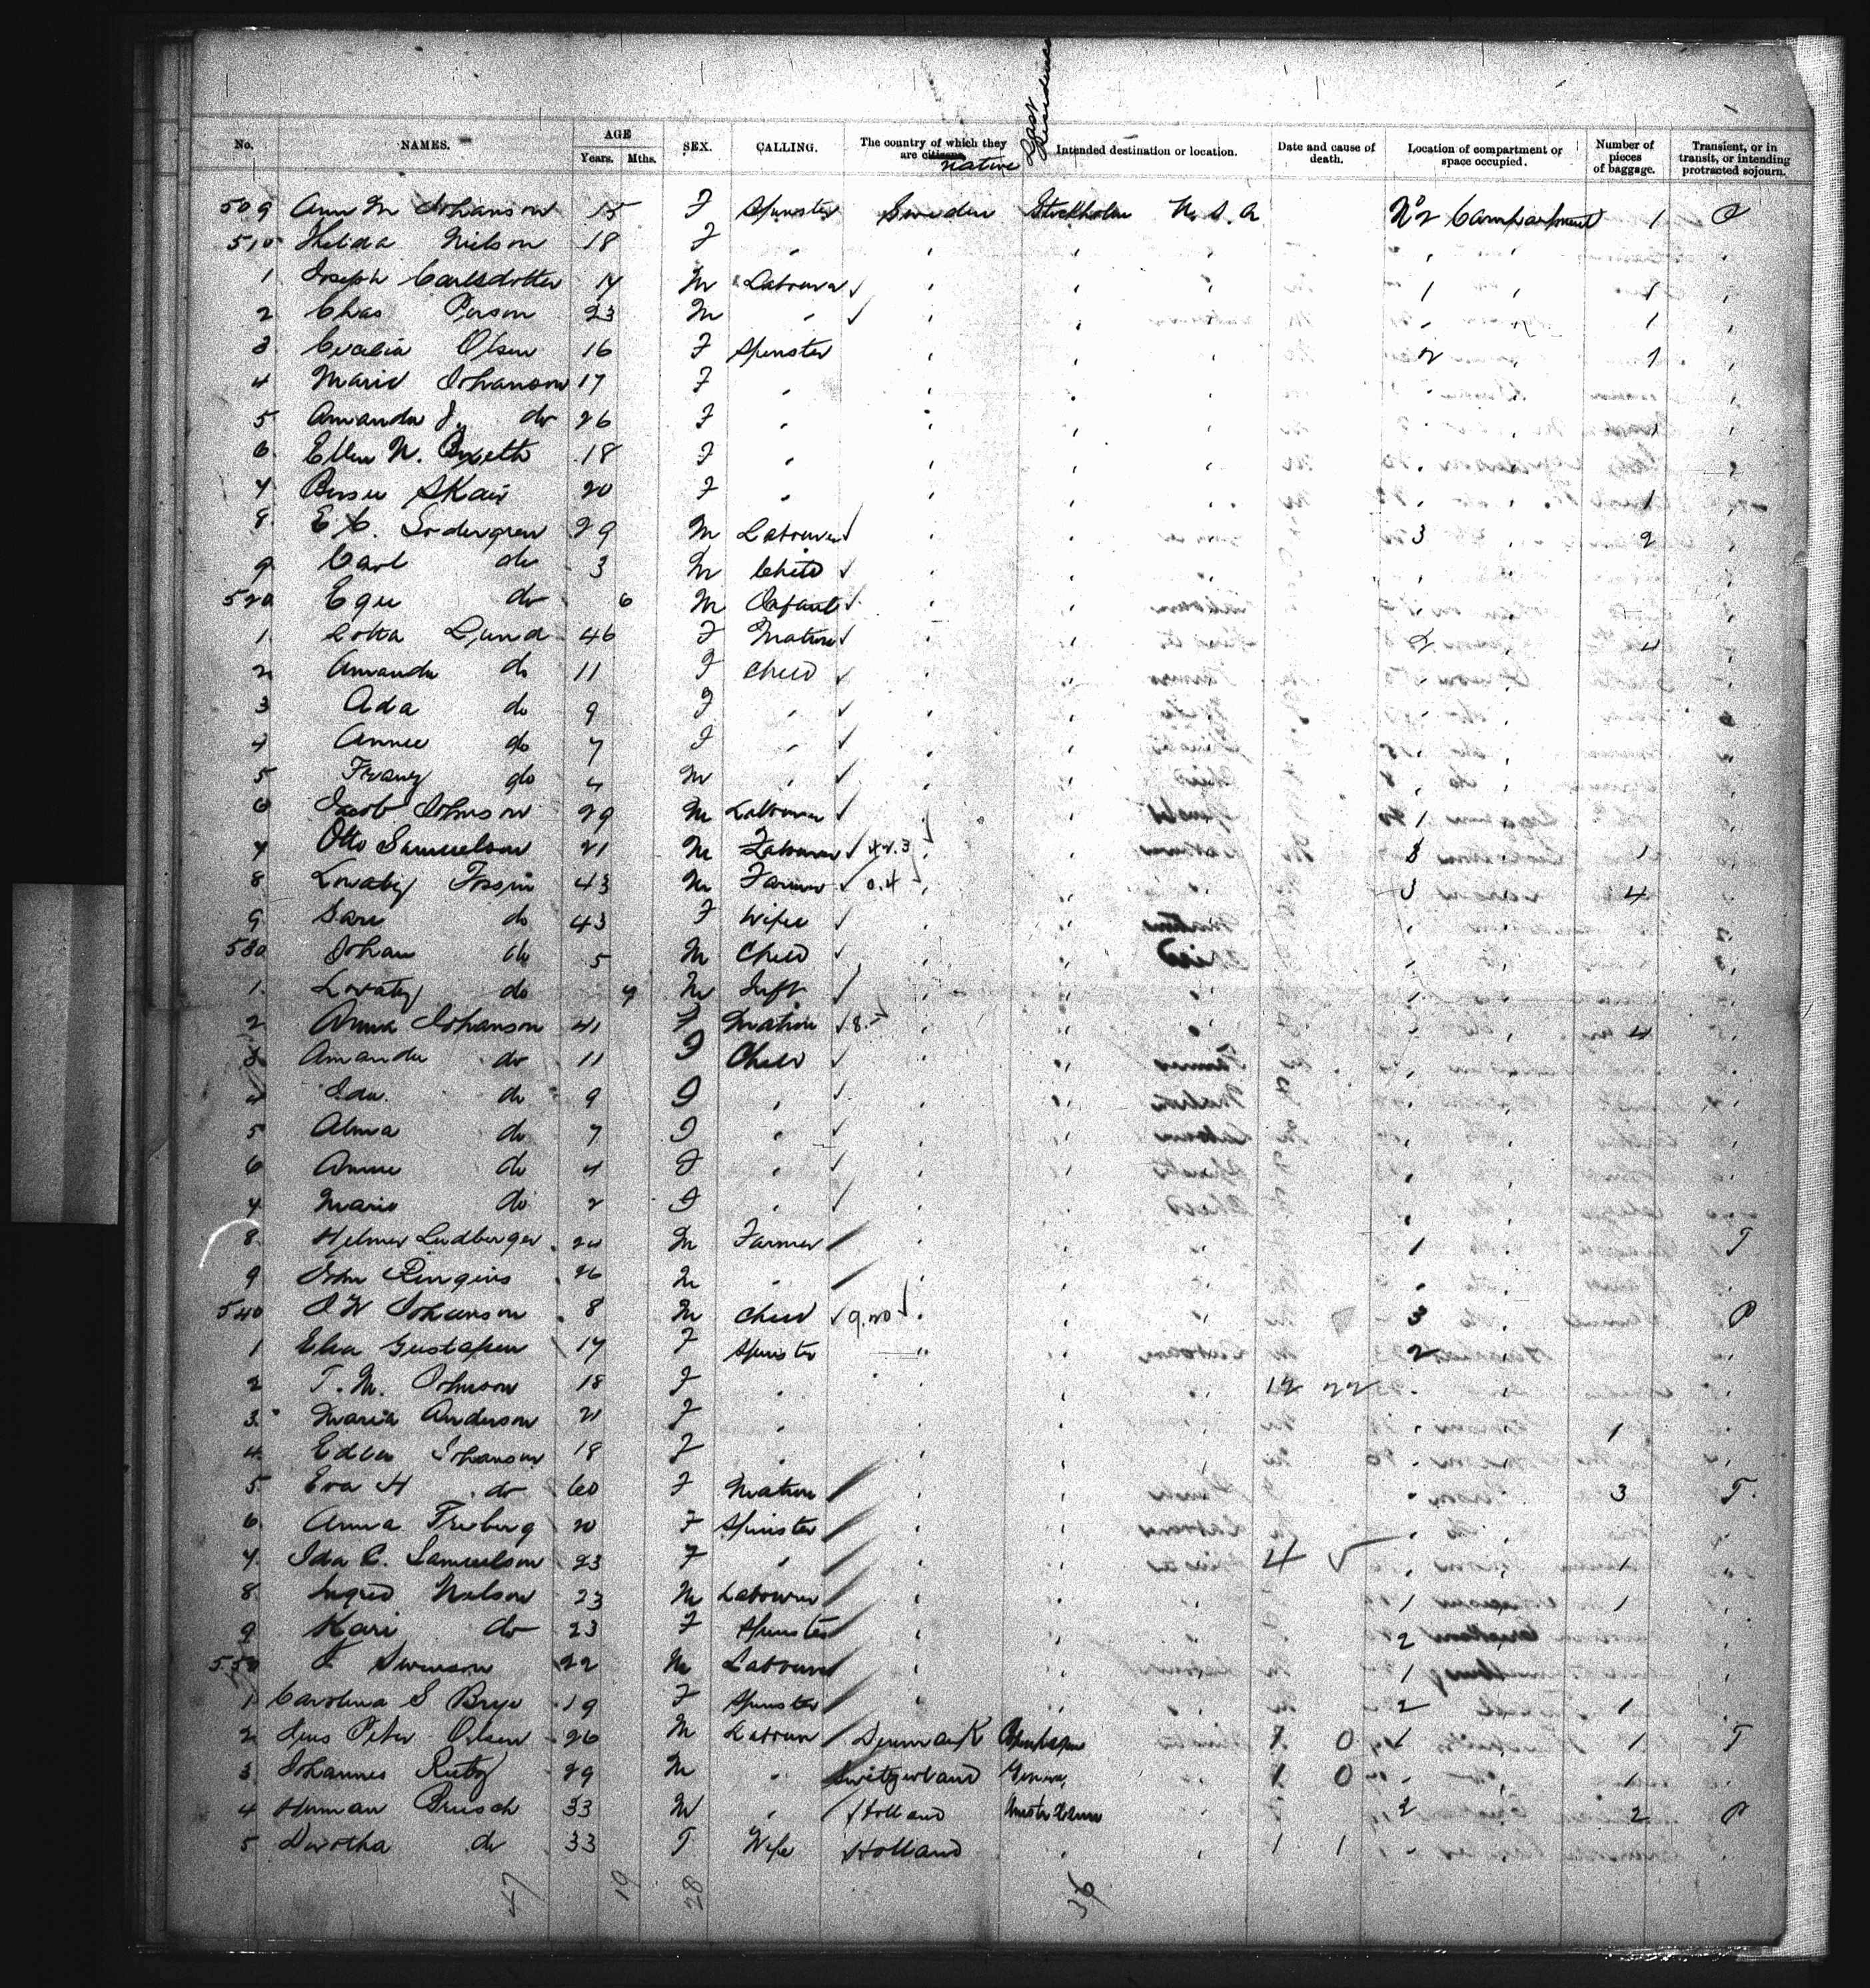 Last Residence
No. NAMES. AGE Years. Mths. SEX. CALLING. The country of which they are citizens. native Intended destination or location. Date and cause of death. Location of compartment or space occupied. Number of pieces of baggage. Transient, or in transit, or intending protracted sojourn.
509 Ann M Johanson 15 F Spinster Sweden Stockholm U.S.A. No 2 Compartment 1 P
510 Nielson 18 F " " " " " "
1 Joseph Carlsdotter 14 M Labourer " " " 1 " 1 "
2 Chas Person 23 M " " " " " " 1 "
3 Olsen 16 F Spinster " " " 2 " 1 "
4 Marie Johanson 17 F " " " " " " "
5 Amanda J. do 26 F " " " " " " 1 "
6 Ellen N. 18 F " " " " " " "
7 20 F " " " " " " 1 "
8 E C. Sodergren 29 M Labourer " " " 3 " 2 "
9 Carl do 3 M Child " " " " " "
520 do 6 M Infant " " " " " "
1 Lotta Lund 46 F Matron " " " 2 " 4 "
2 Amanda do 11 F Child " " " " " "
3 Ada do 9 F " " " " " " "
4 Annie do 7 F " " " " " " "
5 Franz do 4 M " " " " " " "
6 Jacob Johnson 29 M Labourer " " " 1 " "
7 Otto Samuelson 21 M Labourer 42.3 " " " 3 " 1 "
8 43 M Farmer 0.4 " " " 3 " 4 "
9 Sara do 43 F Wife " " " " " "
530 Johan do 5 M Child " " " " " "
1 do 9 M Inft " " " " " "
2 Anna Johanson 41 F Matron 8. " " " " " 4 "
3 Amanda do 11 F Child " " " " " "
4 Ida do 9 F " " " " " " "
5 Alma do 7 F " " " " " " "
6 Annie do 4 F " " " " " " "
7 Marie do 2 F " " " " " " "
8 Helmer Ludberger 24 M Farmer " " " 1 " T
9 John 26 M " " " " " " "
540 J W Johanson 8 M Child 9.20 " " " 3 " P
1 Elsa Gustafsen 17 F Spinster " " " 2 " "
2 T. M. Johnson 18 F " " " " 12 22 " " "
3 Maria Anderson 21 F " " " " " " 1 "
4 Edla Johanson 18 F " " " " " " "
5 Eva H do 60 F Matron " " " " " 3 T.
6 Anna Freberg 20 F Spinster " " " " " "
7 Ida C. Samuelson 23 F " " " " 4 " " 1 "
8 Nelson 23 M Labourer " " " 1 " 1 "
9 Kari do 23 F Spinster " " " 2 " "
550 Swenson 22 M Labourer " " " 1 " "
1 Carolina S 19 F Spinster " " " 2 " 1 "
2 Jens Peter Olsen 26 M Labour Denmark Copenhagen " 1. 0 1 " 1 T
3 Johannes 29 M " Switzerland Geneva " 1. 0 " " 1 "
4 Herman 33 M " Holland Amsterdam " 2 " 2 P
5 Dorotha do 33 F Wife Holland " " 1 1 " " "
47 19 28 36